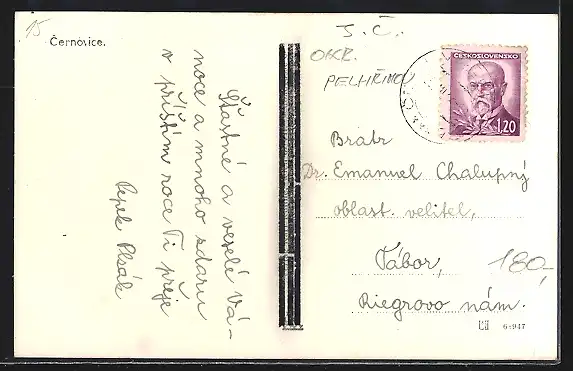 15
Černovice.
J. Č.
OKR.
PELHŘIMOV
ČESKOSLOVENSKO
1.20
Šťastné a veselé Vá-
noce a mnoho zdaru
v příštím roce Ti přeje
Pepek Plsák
Bratr
Dr. Emanuel Chalupný
oblast. velitel,
Tábor,
Riegrovo nám.
180,-
6-947